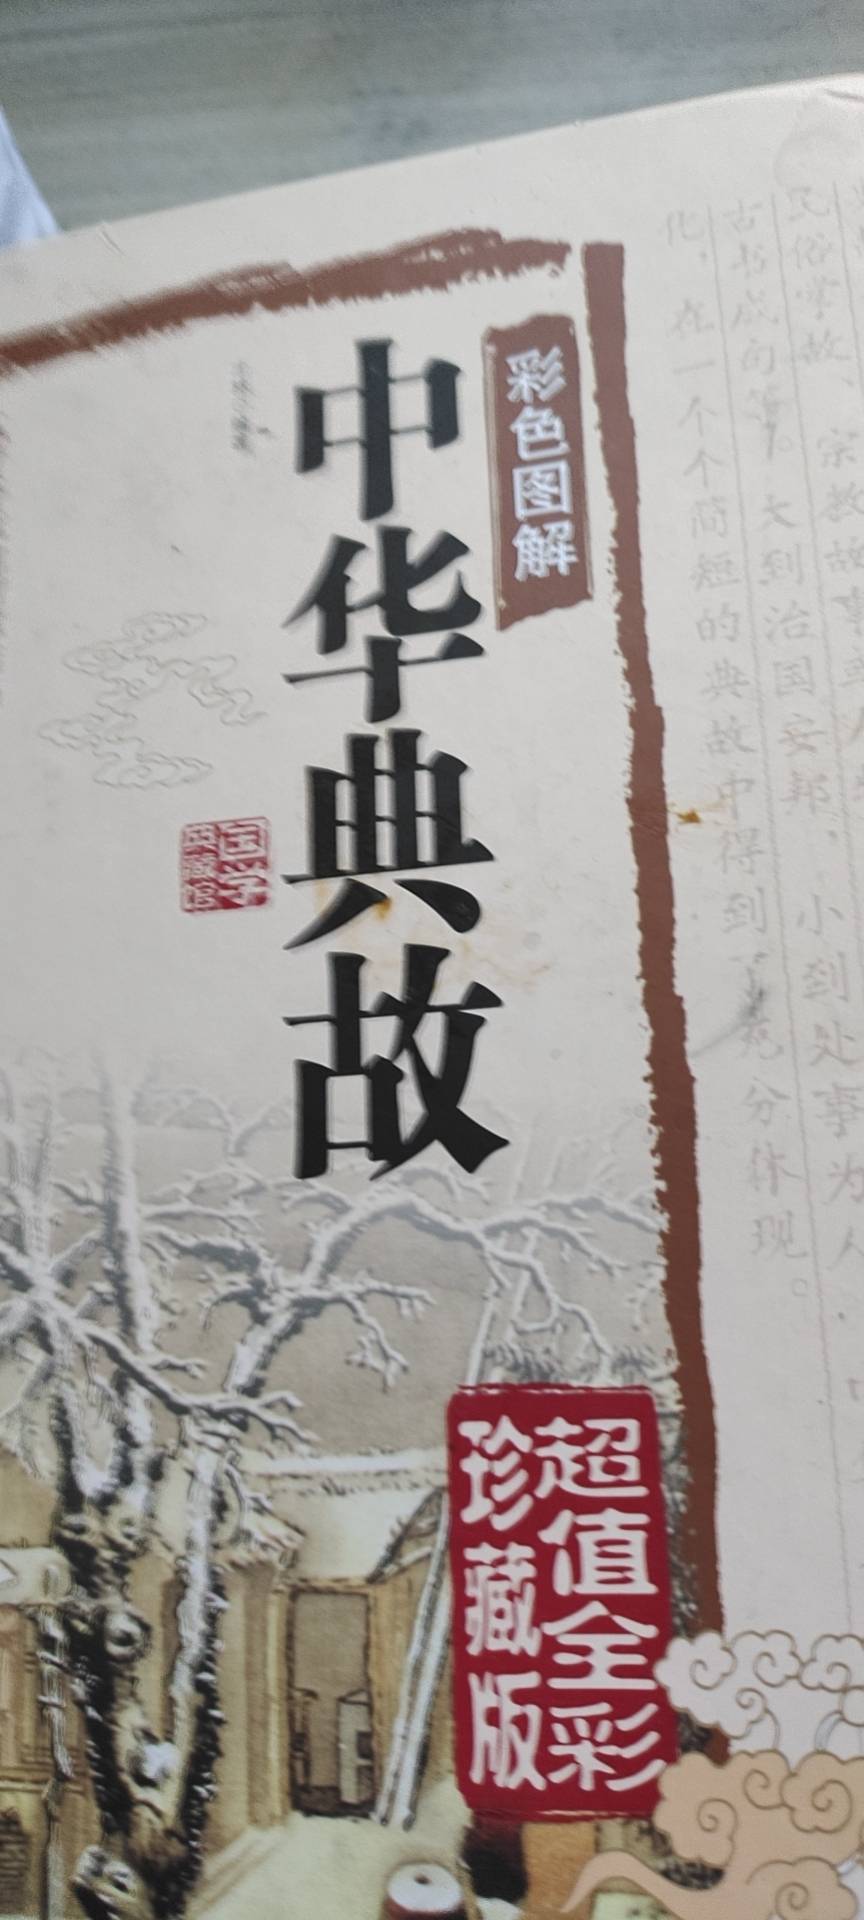 民俗掌故、宗教故事
古书成句等。大到治国安邦，小到处事为人，
化，在一个个简短的典故中得到了充分体现。
彩色图解
中华典故
国学
典藏馆
超值全彩
珍藏版